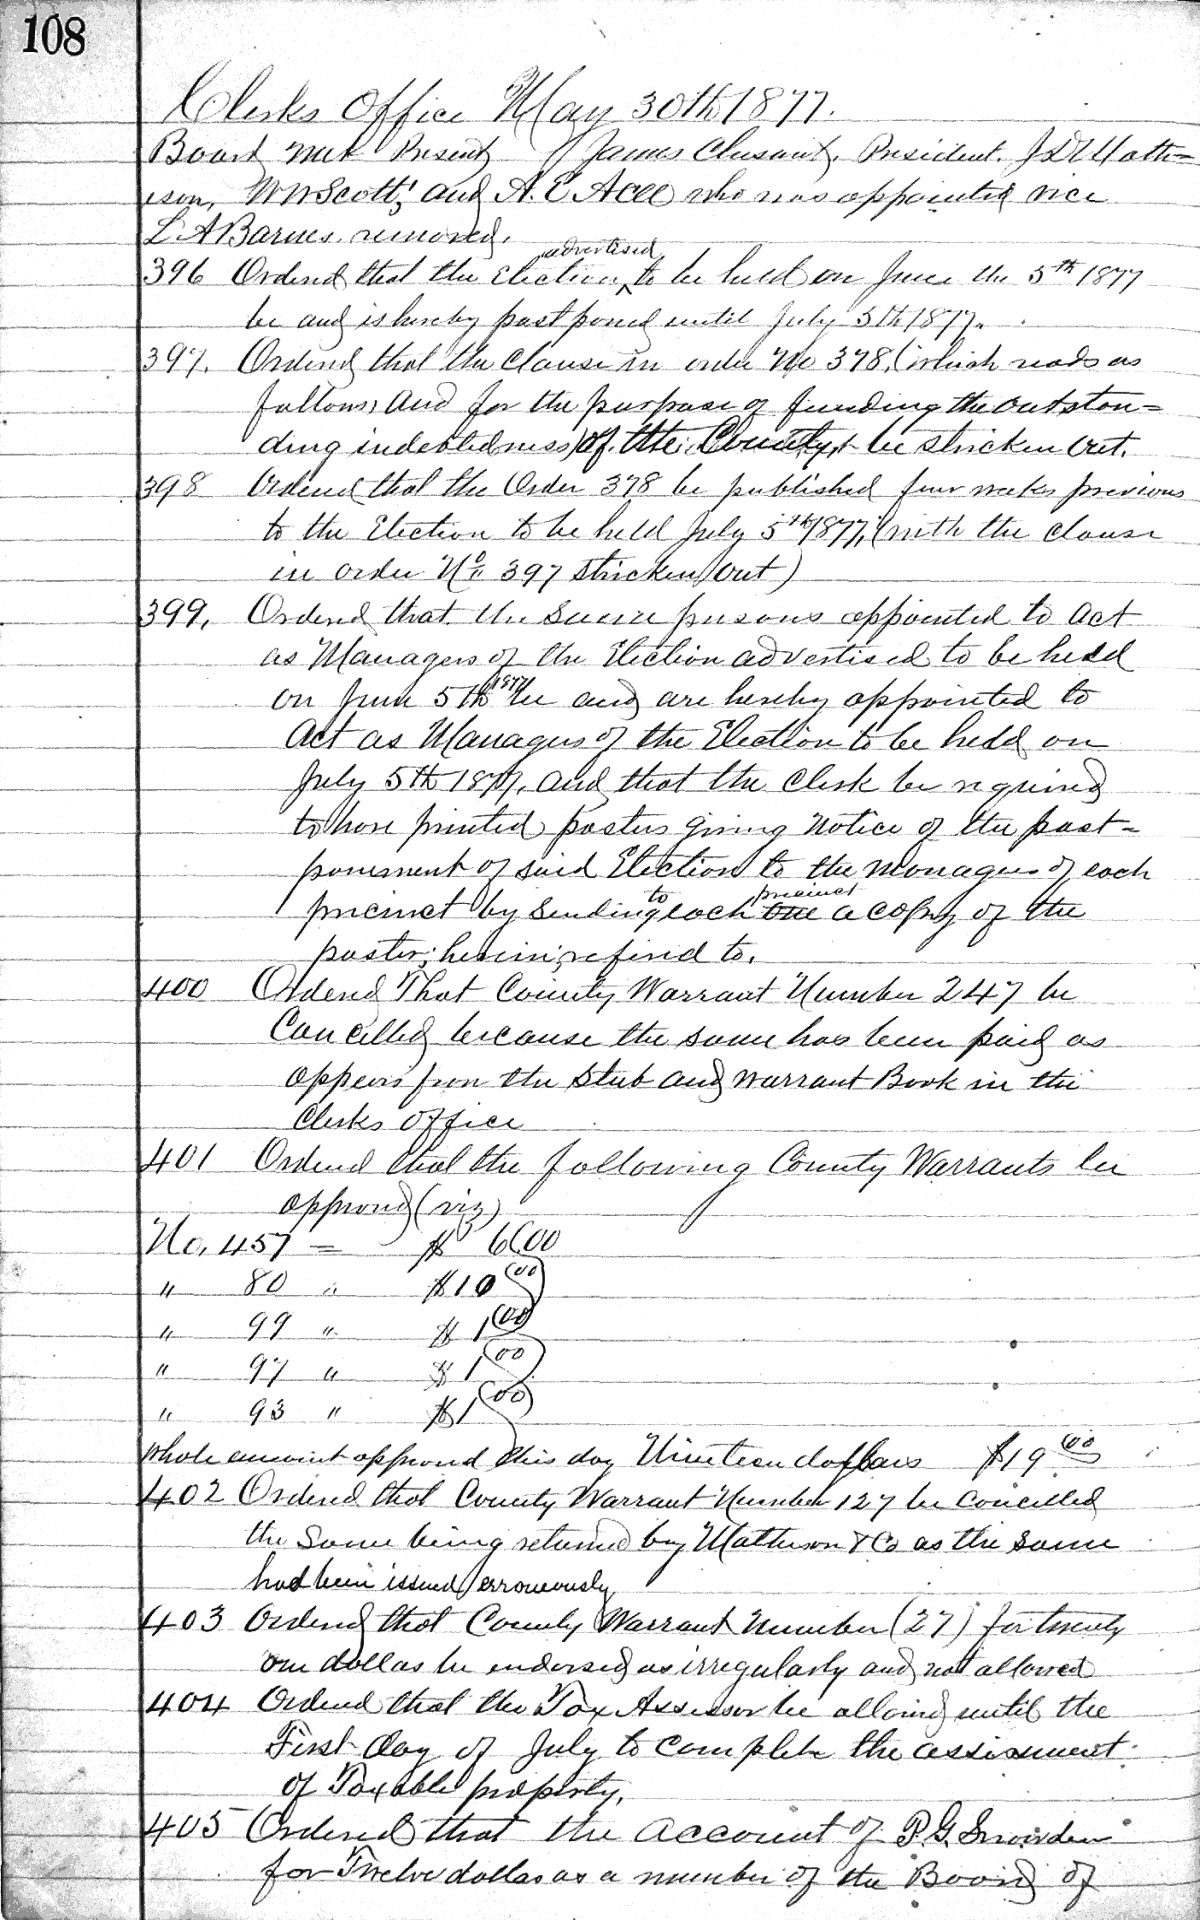 108
Clerks Office May 30th 1877.
Board met Present James Chesnut, President. J D Math=
ison, Wm Scott, and A. C. Acee who was appointed vice
L A Barnes removed.
advertised
396 Ordered that the Election to be held on June the 5th 1877
be and is hereby postponed until July 5th 1877.
397. Ordered that the Clause in order No 378, (which reads as
follows, And for the purpose of funding the outstan=
ding indebtedness of the County) be stricken out.
398 Ordered that the Order 378 be published four weeks previous
to the Election to be held July 5th 1877, (with the clause
in order No 397 stricken out)
399. Ordered that the same persons appointed to act
as Managers of the Election advertised to be held
on June 5th 1877 be and are hereby appointed to
Act as Managers of the Election to be held on
July 5th 1877, and that the Clerk be required
to have printed posters giving Notice of the post-
ponement of said Election to the Managers of each
precinct by sending to each one precinct a copy of the
poster, herein, refered to.
400 Ordered That County Warrant Number 247 be
Cancelled because the same has been paid as
appears from the Stub and Warrant Book in the
Clerks Office
401 Ordered that the following County Warrants be
approved (viz)
No. 457 — $ 6.00
" 80 " $10 00
" 99 " $ 1 00
" 97 " $ 1 00
" 93 " $1 00
Whole amount approved this day Nineteen dollars $19 00
402 Ordered that County Warrant Number 127 be Concelled
the Same being returned by Matheson & Co as the same
had been issued erroneously
403 Ordered that County Warrant Number (27) for twenty
one dollas be endorsed as irregularly and not allowed
404 Ordered that the Tax Assessor be allowed until the
First day of July to complete the assessment
of Taxable property.
405 Ordered that the account of P. G. Snowden
for Twelve dollas as a member of the Board of